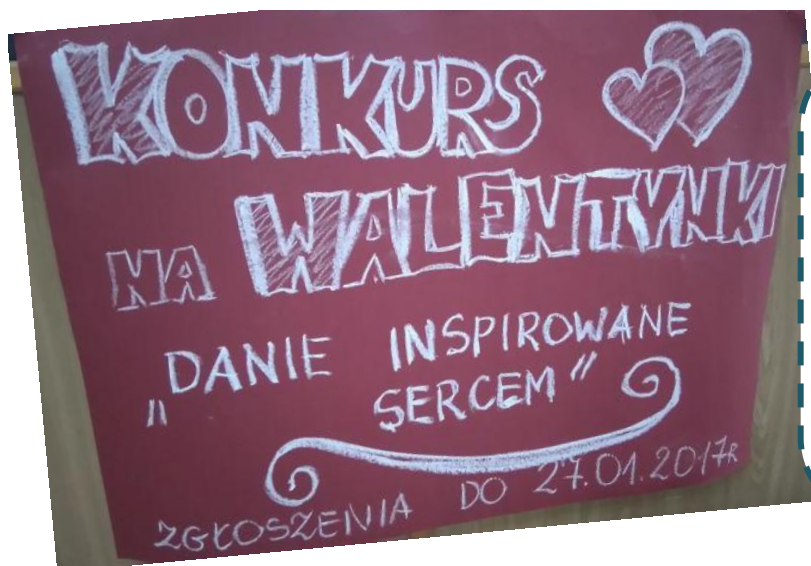 KONKURS
NA WALENTYNKI
„DANIE INSPIROWANE
SERCEM"
ZGŁOSZENIA DO 27.01.2017R